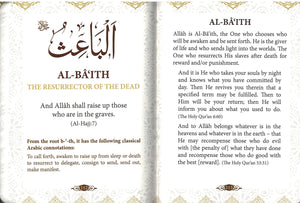 الْبَاعِثُ
AL-BÂ'ITH
THE RESURRECTOR OF THE DEAD
And Allâh shall raise up those
who are in the graves.
(Al-Hajj:7)
From the root b-'-th, it has the following classical
Arabic connotations:
To call forth, awaken to raise up from sleep or death
to resurrect to delegate, consign to send, send out,
make manifest.
AL-BÂ'ITH
Allâh is Al-Bâ'ith, the One who chooses who
will be awaken and be sent forth. He is the giver
of life and who sends light into the worlds. The
One who resurrects His slaves after death for
reward and/or punishment.
And it is He who takes your souls by night
and knows what you have committed by
day. Then He revives you therein that a
specified term may be fulfilled. Then to
Him will be your return, then He will
inform you about what you used to do.
(The Holy Qur'an 6:60)
And to Allâh belongs whatever is in the
heavens and whatever is in the earth – that
He may recompense those who do evil
with [the penalty of] what they have done
and recompense those who do good with
the best [reward]. (The Holy Qur'an 53:31)